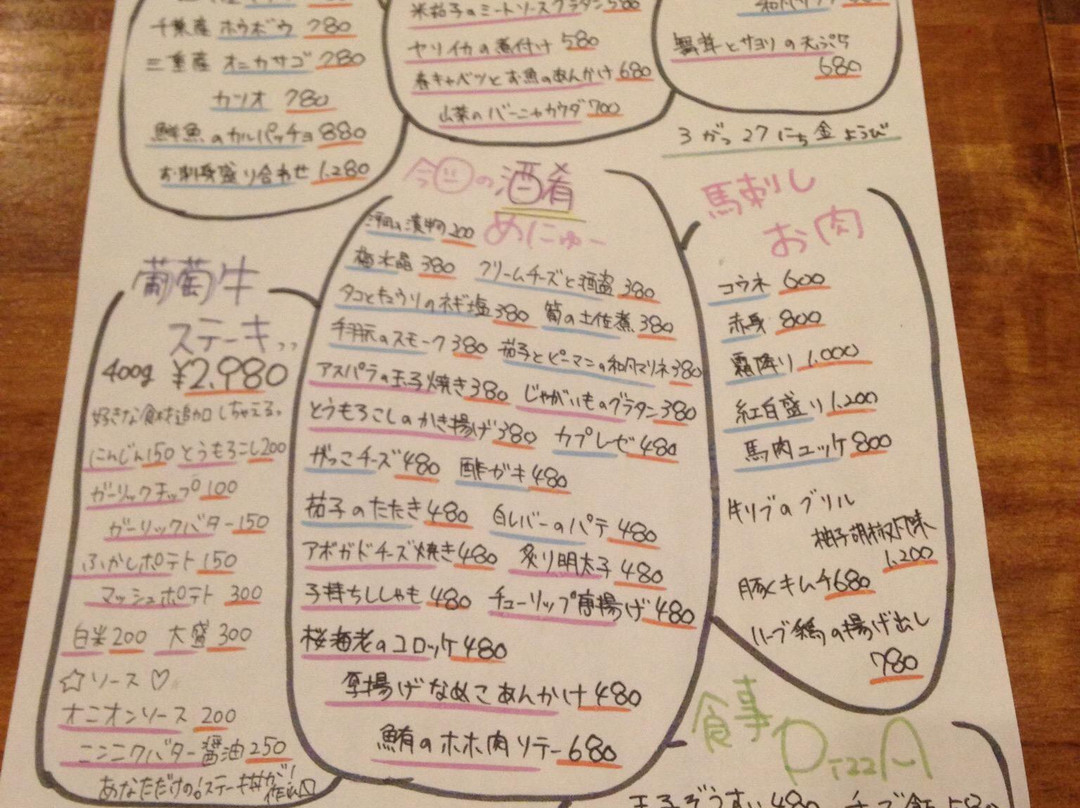 千葉産 ホウボウ 780
三重産 オニカサゴ 780
カツオ 780
鮮魚のカルパッチョ 880
お刺身盛り合わせ 1,280
米茄子のミートソースグラタン 580
ヤリイカの煮付け 580
春キャベツとお魚のあんかけ 680
山菜のバーニャカウダ 700
とサヨリの天ぷら
680
3がつ27にち金ようび
葡萄牛
ステーキ
400g ¥2,980
好きな食材追加しちゃえる。
にんじん150 とうもろこし200
ガーリックチップ 100
ガーリックバター 150
ふかしポテト 150
マッシュポテト 300
白米200 大盛300
☆ソース♡
オニオンソース 200
ニンニクバター醤油 250
あなただけの!ステーキ丼が!
今日の酒肴
めにゅー
漬物 200
梅水晶 380 クリームチーズと酒盗 380
タコとキュウリのネギ塩 380 筍の土佐煮 380
手羽元のスモーク 380 茄子とピーマンの和風マリネ 380
アスパラの玉子焼き 380 じゃがいものグラタン 380
とうもろこしのかき揚げ 380 カプレーゼ 480
がっこチーズ 480 酢ガキ 480
茄子のたたき 480 白レバーのパテ 480
アボガドチーズ焼き 480 炙り明太子 480
子持ちししゃも 480 チューリップ唐揚げ 480
桜海老のコロッケ 480
厚揚げなめこあんかけ 480
鮪のホホ肉ソテー 680
馬刺し
お肉
コウネ 600
赤身 800
霜降り 1,000
紅白盛り 1,200
馬肉ユッケ 800
牛リブのグリル
柚子胡椒風味
1,200
豚キムチ 680
ハーブ鶏の揚げ出し
780
食事
PizzA
玉子ぞうすい 480